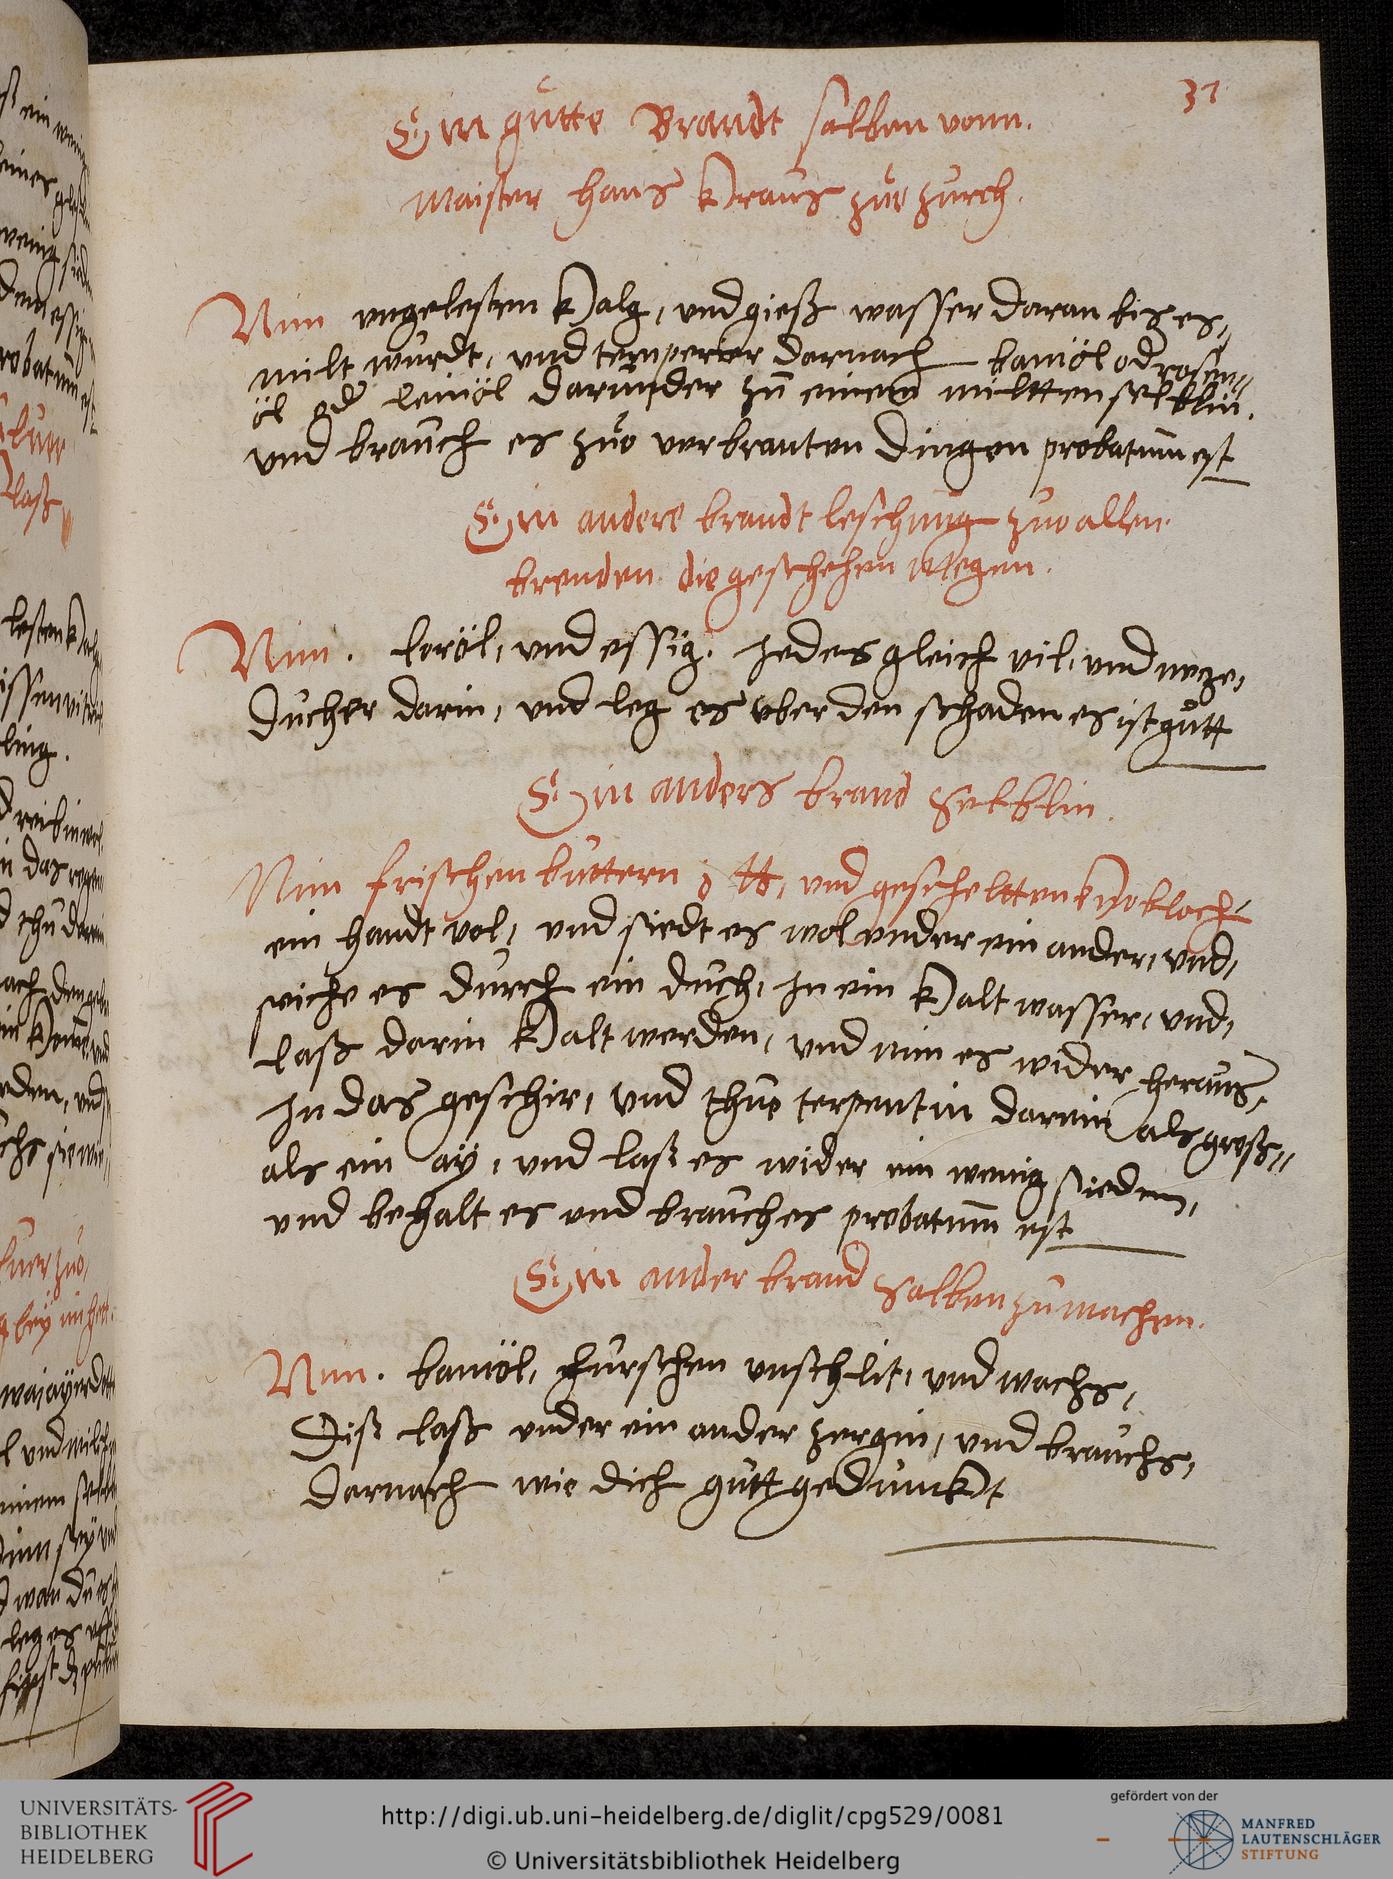 37
Ein gůtte Brandt salben vonn.
Maister hans Kraus zůe zurch.
Nim vngelesten Kalg, vnd gieß wasser daran bis es,
milt wurdt, vnd temperier darnach bamöl od rosen=
öl od leinöl darunder zu einem miltten selblin.
vnd brauch es zůo verbranten dingen probatum est
Ein andere brandt leschung zuo allen.
brenden die geschehen Megen.
Nim. loröl, vnd essig. Jedes gleich vil, vnd neze,
ducher darin, vnd leg es vber den schaden es ist gůtt
Ein anders brand Selblin.
Nim frischen buttern ʒ ℔, vnd gescheltten Knobloch,
ein handt vol, vnd siedt es wol vnder ein ander, vnd,
seiche es durch ein duch, In ein Kalt wasser, vnd,
laß darin Kalt werden, vnd nim es wider heraus,
In das geschir, vnd thue terpentin darein als groß=
als ein ay, vnd laß es wider ein wenig sieden,
vnd behalt es vnd brauches probatum est
Ein ander brand Salben zu machen.
Nim. bamöl, hurschen vnschlit, vnd wachs,
Diß laß vnder ein ander zergin, vnd brauchs,
darnach wie dich gutt gedunckt
UNIVERSITÄTS-
BIBLIOTHEK
HEIDELBERG
http://digi.ub.uni-heidelberg.de/diglit/cpg529/0081
© Universitätsbibliothek Heidelberg
gefördert von der
MANFRED
LAUTENSCHLÄGER
STIFTUNG